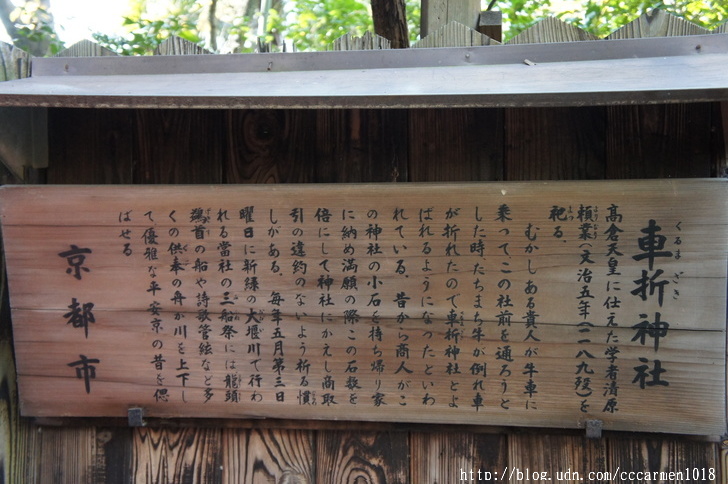 車折神社
くるまざき
高倉天皇に仕えた学者清原
頼業(文治五年(一一八九)歿)を
祀る。
むかしある貴人が牛車に
乗ってこの社前を通ろうと
した時たちまち牛が倒れ車
が折れたので車折神社とよ
ばれるようになったといわ
れている。昔から商人がこ
の神社の小石を持ち帰り家
に納め満願の際この石数を
倍にして神社にかえし商取
引の違約のないよう祈る慣
しがある。毎年五月第三日
曜日に新緑の大堰川で行わ
れる當社の三船祭には龍頭
鷁首の船や詩歌管絃など多
くの供奉の舟が川を上下し
て優雅な平安京の昔を偲
ばせる
京都市
http://blog.udn.com/cccarmen1018